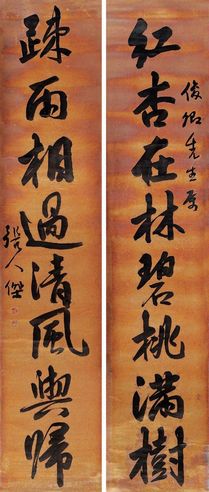 紅杏在林碧桃滿樹
俊卿先生屬
疎雨相過清風與歸
張人傑